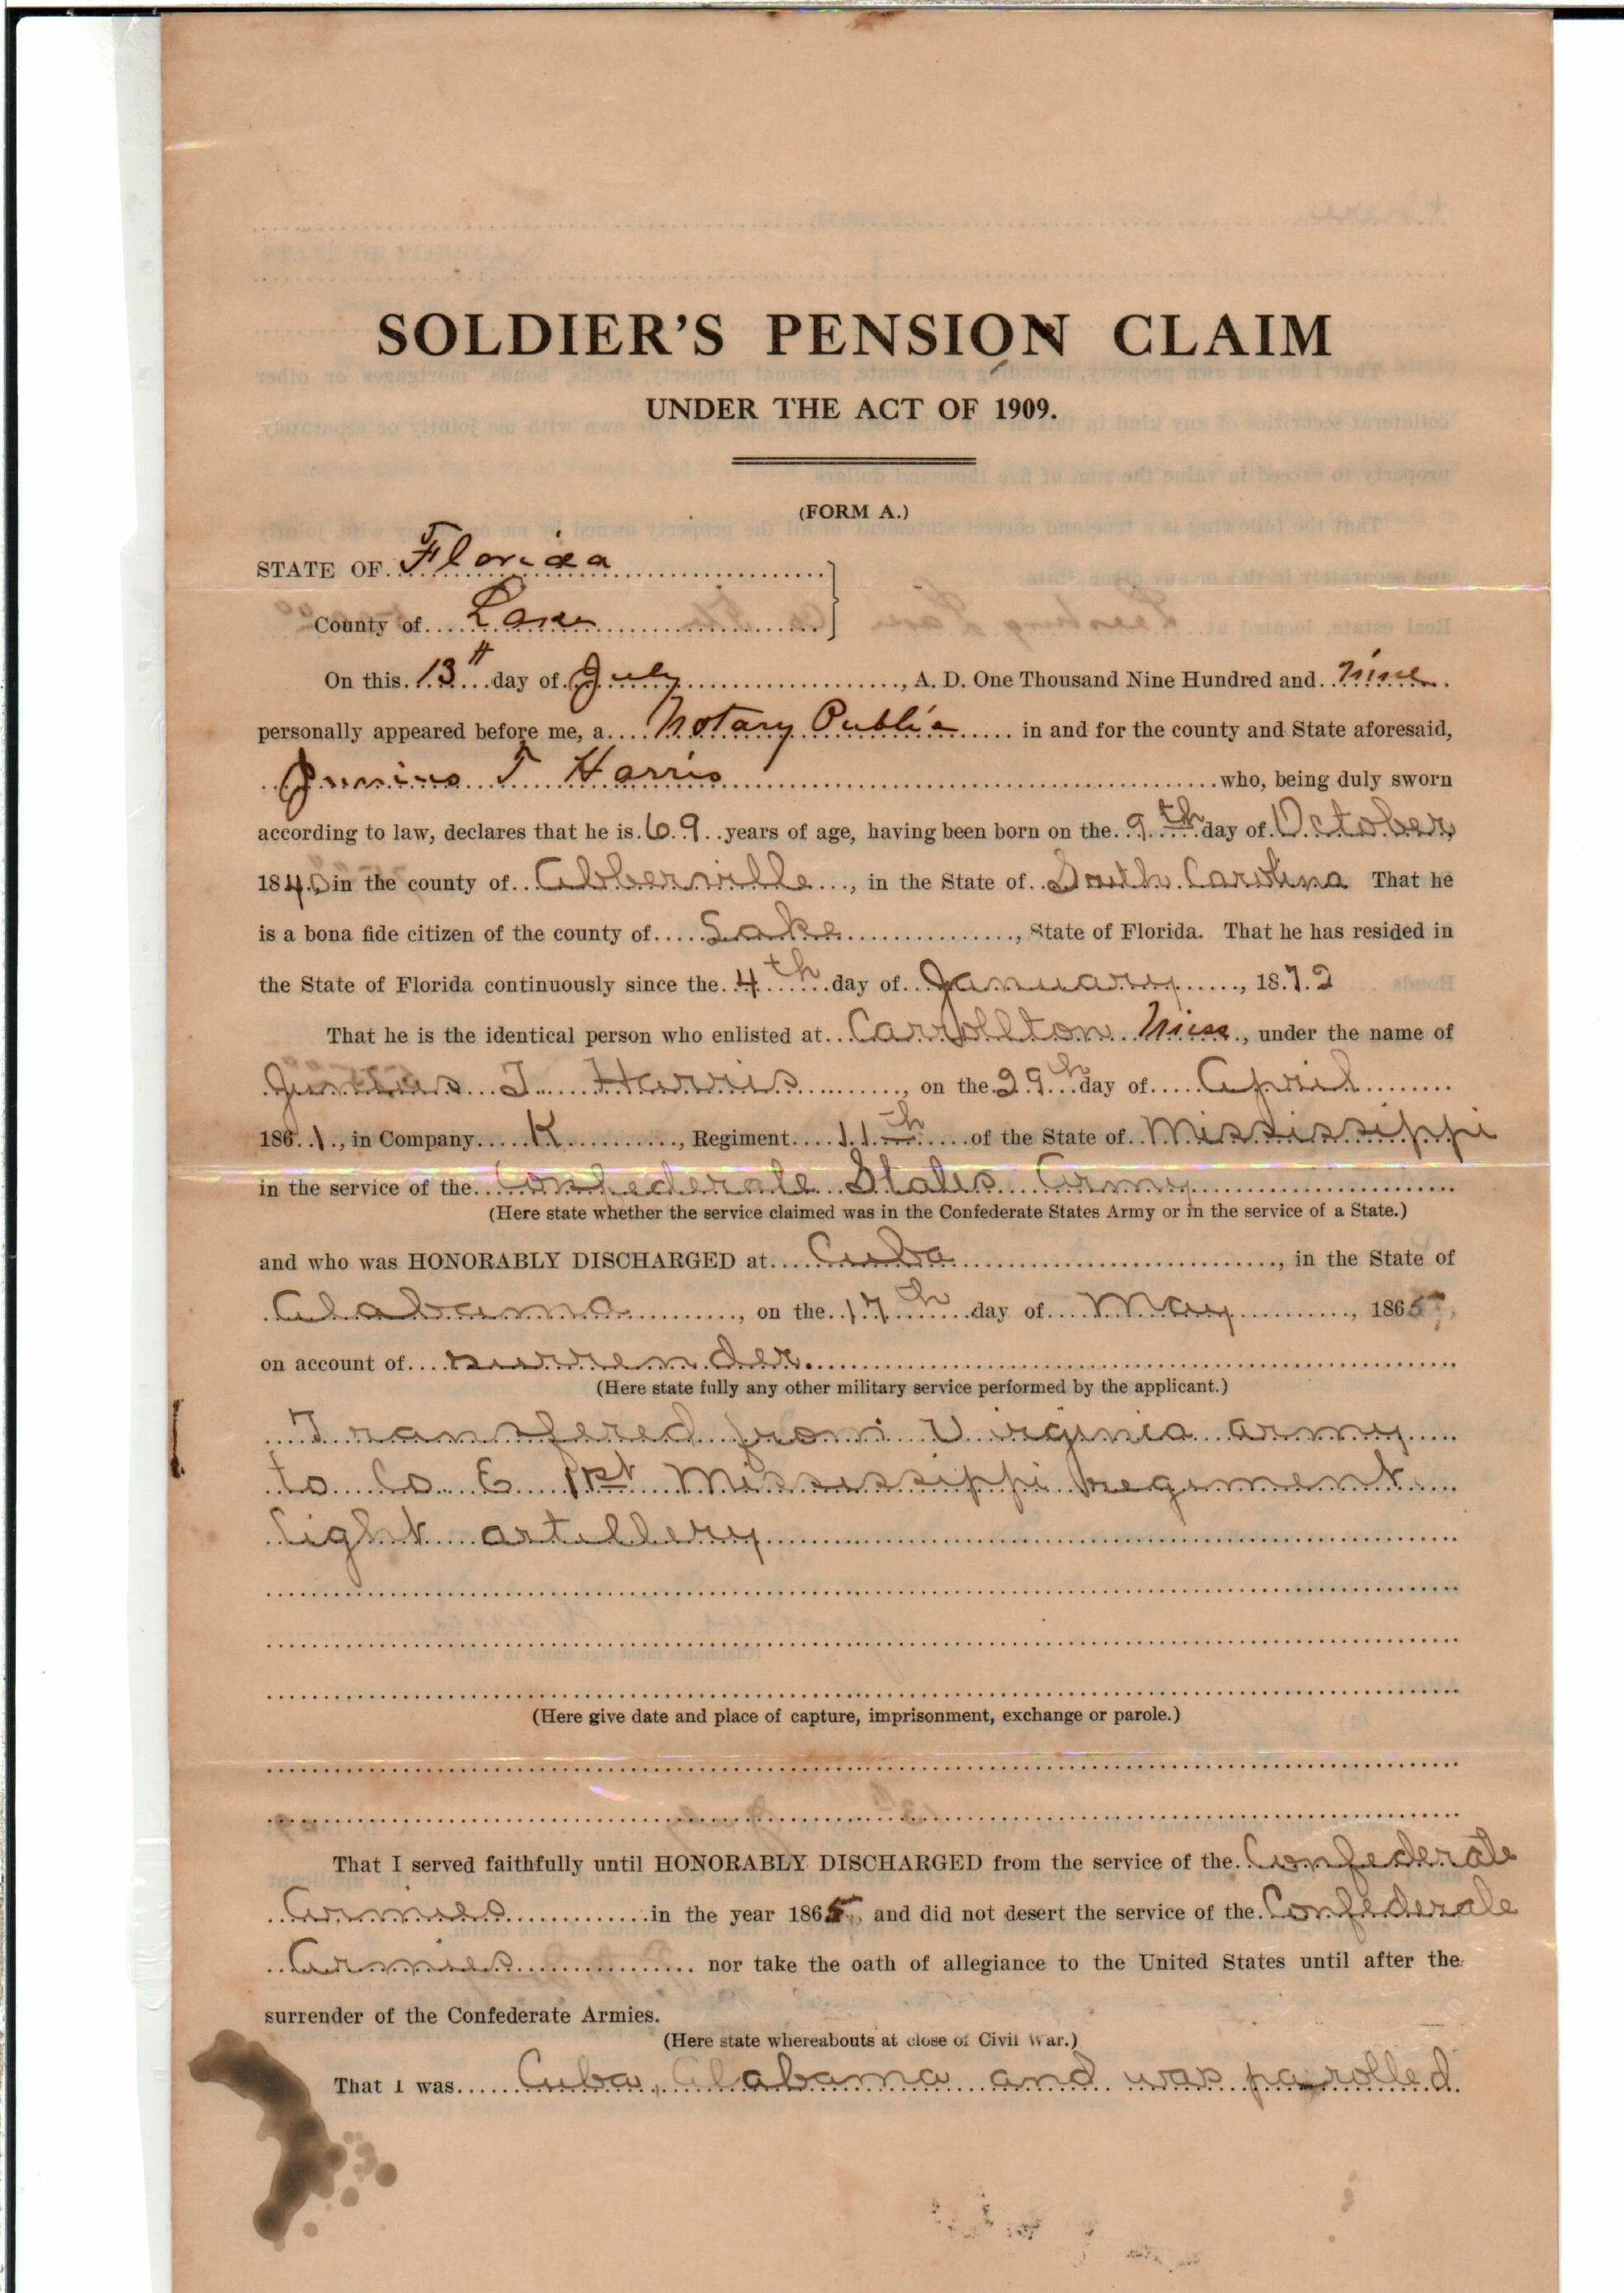 SOLDIER'S PENSION CLAIM
UNDER THE ACT OF 1909.
(FORM A.)
STATE OF Florida
County of Lake
On this 13th day of July, A. D. One Thousand Nine Hundred and nine
personally appeared before me, a Notary Public in and for the county and State aforesaid,
Junius T Harris who, being duly sworn
according to law, declares that he is 69 years of age, having been born on the 9th day of October
1840 in the county of Abberville, in the State of South Carolina That he
is a bona fide citizen of the county of Lake, State of Florida. That he has resided in
the State of Florida continuously since the 4th day of January, 1872
That he is the identical person who enlisted at Carrollton Miss, under the name of
Junius T Harris, on the 29th day of April
1861, in Company K, Regiment 11th of the State of Mississippi
in the service of the Confederate States Army
(Here state whether the service claimed was in the Confederate States Army or in the service of a State.)
and who was HONORABLY DISCHARGED at Cuba, in the State of
Alabama, on the 17th day of May, 1865,
on account of surrender.
(Here state fully any other military service performed by the applicant.)
Transfered from Virginia army
to Co E 1st Mississippi regiment
light artillery
(Here give date and place of capture, imprisonment, exchange or parole.)
That I served faithfully until HONORABLY DISCHARGED from the service of the Confederate
Armies in the year 1865, and did not desert the service of the Confederate
Armies nor take the oath of allegiance to the United States until after the
surrender of the Confederate Armies.
(Here state whereabouts at close of Civil War.)
That I was Cuba, Alabama and was parrolled